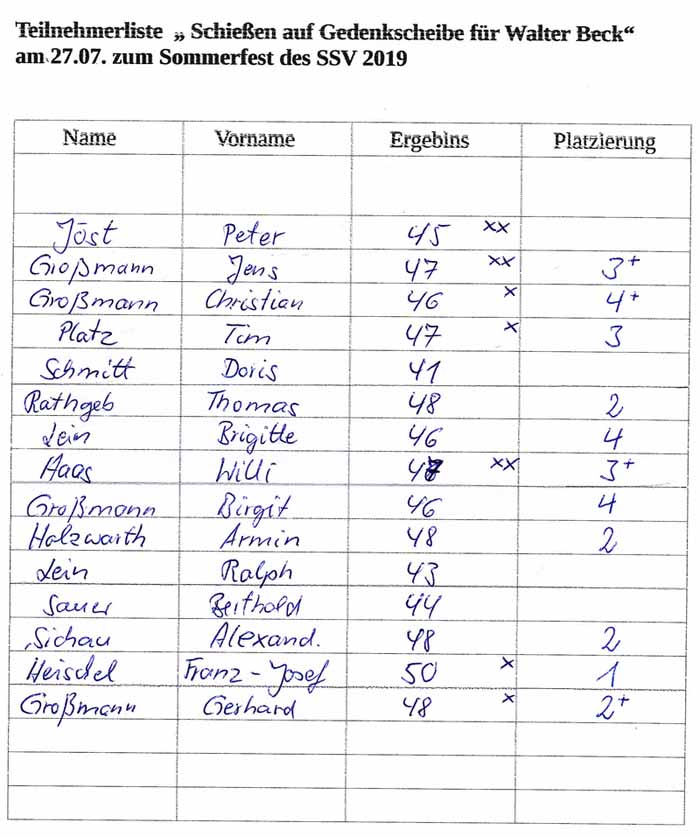 Teilnehmerliste „ Schießen auf Gedenkscheibe für Walter Beck“
am 27.07. zum Sommerfest des SSV 2019
Name Vorname Ergebins Platzierung
Jöst Peter 45 xx
Großmann Jens 47 xx 3+
Großmann Christian 46 x 4+
Platz Tim 47 x 3
Schmitt Doris 41
Rathgeb Thomas 48 2
Lein Brigitte 46 4
Haas Willi 47 xx 3+
Großmann Birgit 46 4
Holzwarth Armin 48 2
Lein Ralph 43
Sauer Berthold 44
Sichau Alexand. 48 2
Heischel Franz-Josef 50 x 1
Großmann Gerhard 48 x 2+